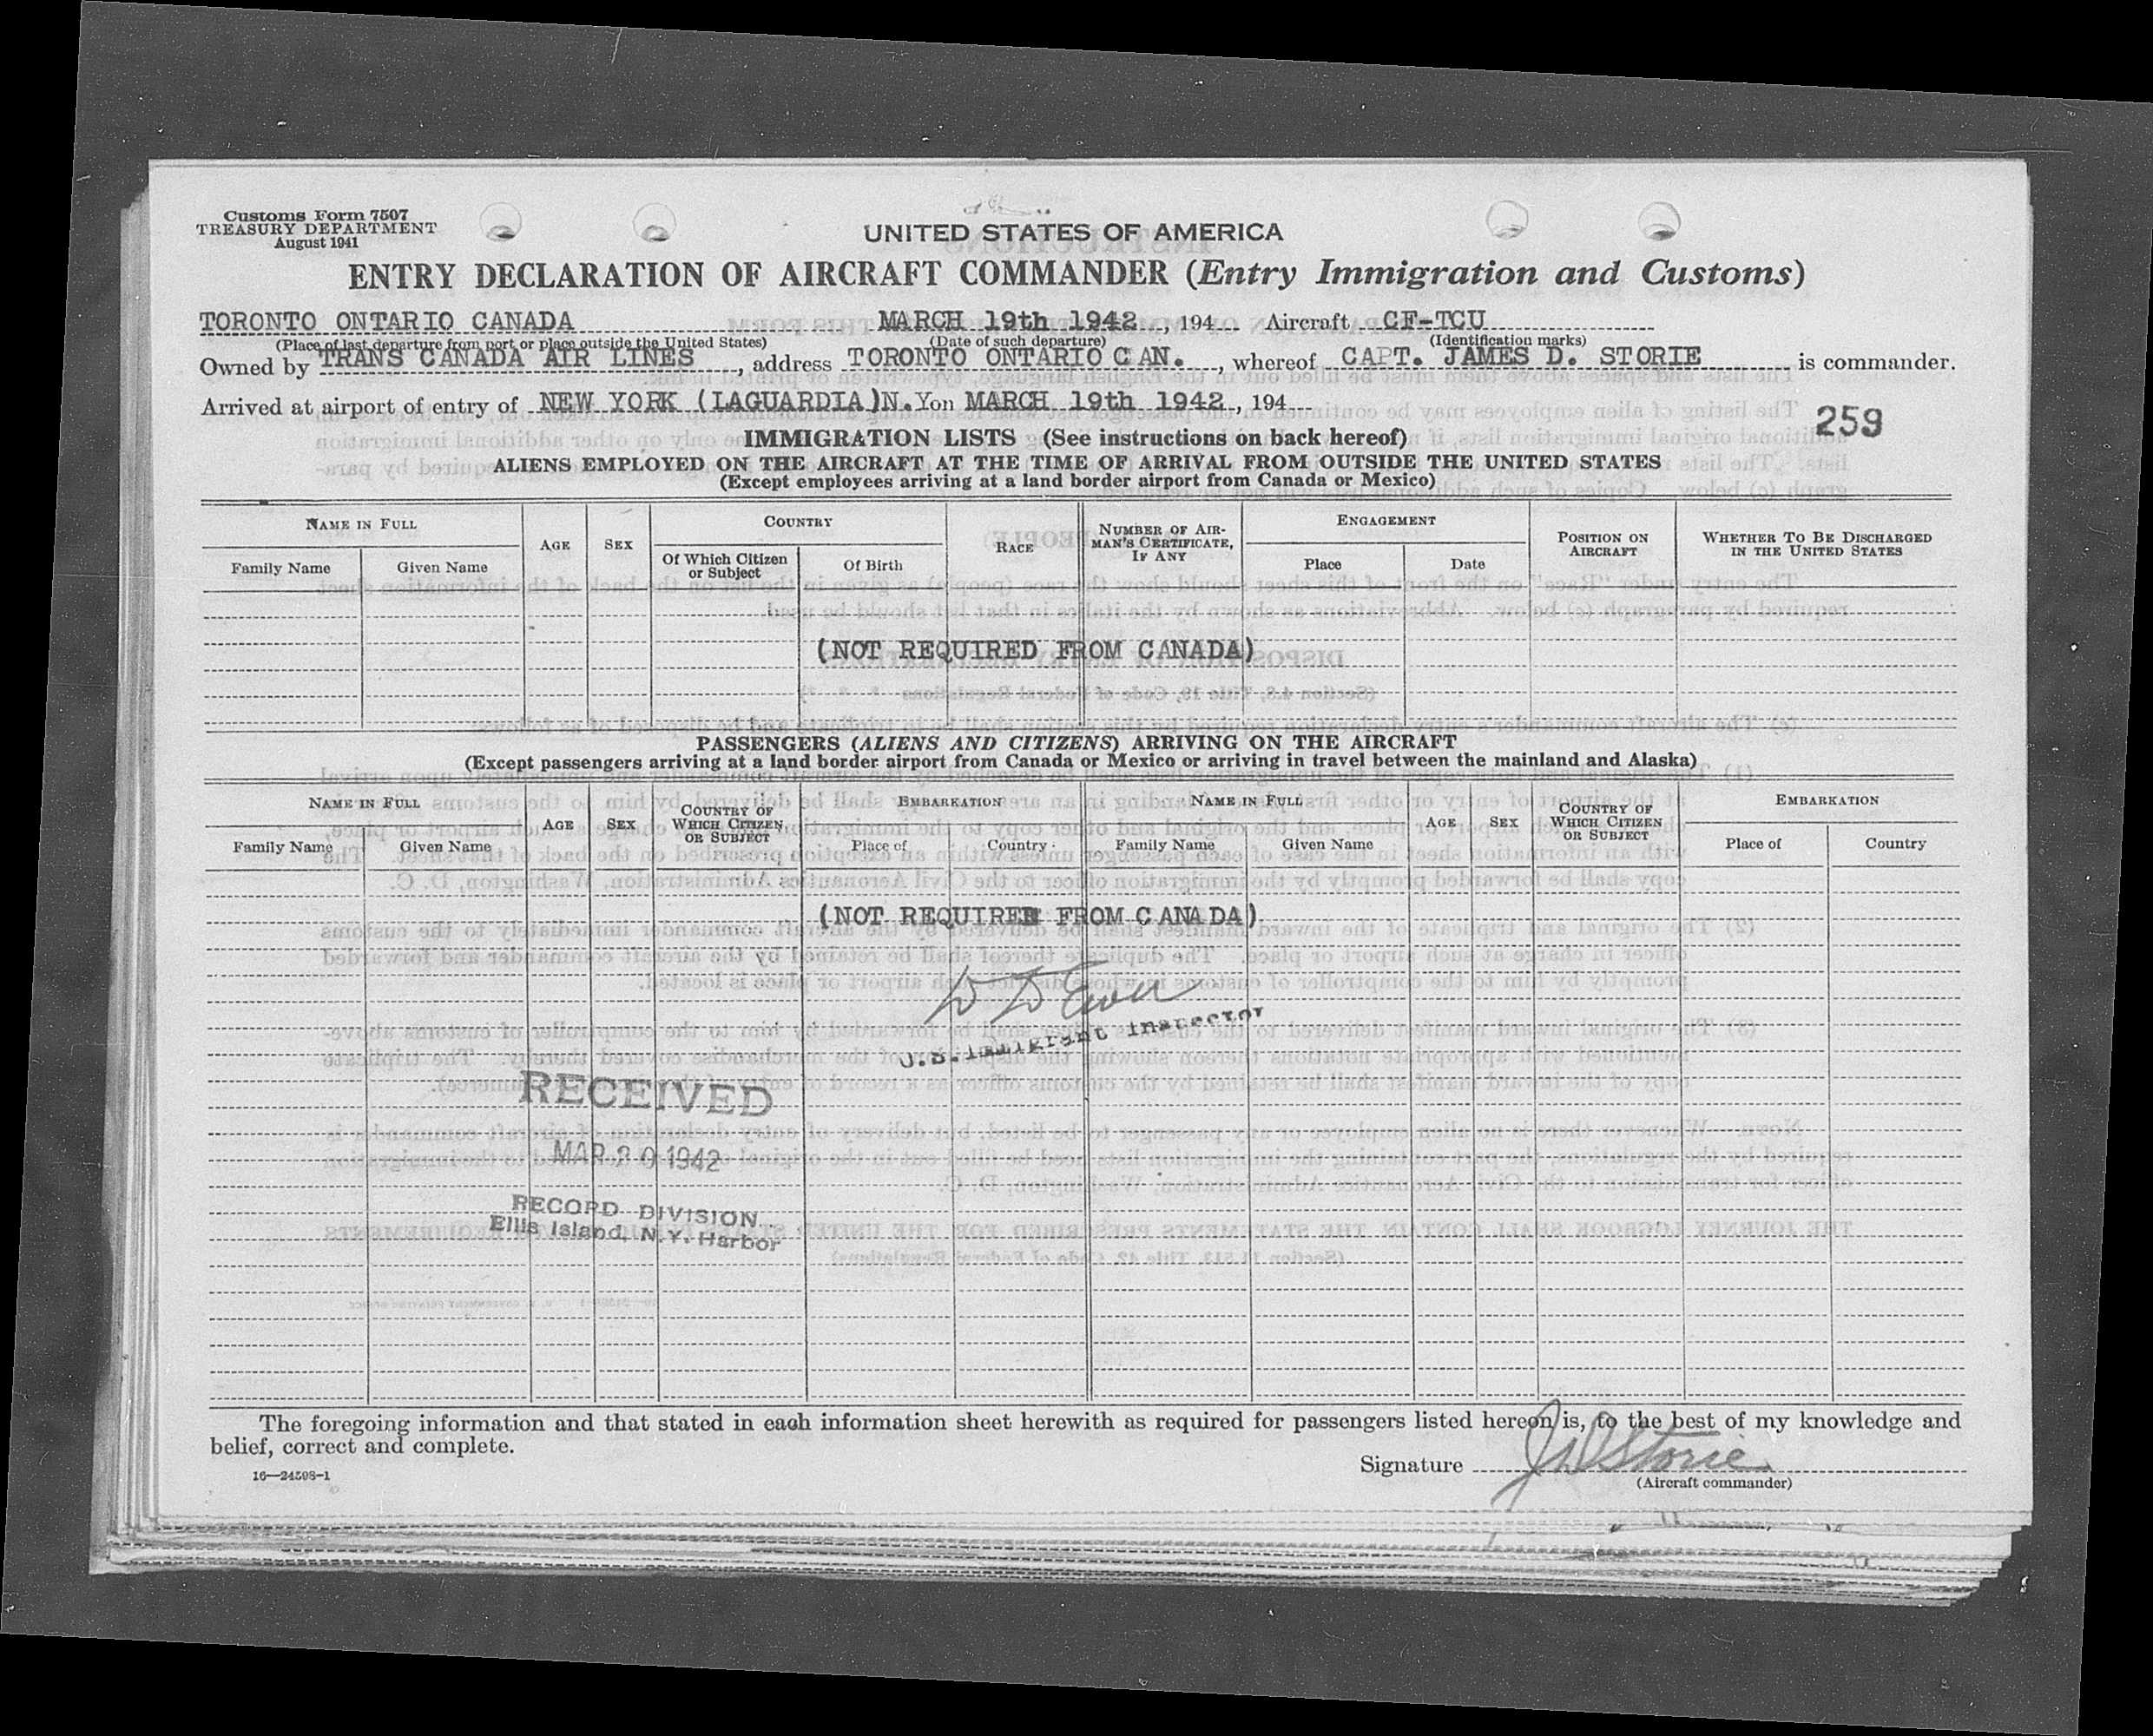 Customs Form 7507
TREASURY DEPARTMENT
August 1941
UNITED STATES OF AMERICA
ENTRY DECLARATION OF AIRCRAFT COMMANDER (Entry Immigration and Customs)
TORONTO ONTARIO CANADA MARCH 19th 1942, 194 Aircraft CF-TCU
(Place of last departure from port or place outside the United States) (Date of such departure) (Identification marks)
Owned by TRANS CANADA AIR LINES, address TORONTO ONTARIO CAN., whereof CAPT. JAMES D. STORIE is commander.
Arrived at airport of entry of NEW YORK (LAGUARDIA)N.Y on MARCH 19th 1942, 194
259
IMMIGRATION LISTS (See instructions on back hereof)
ALIENS EMPLOYED ON THE AIRCRAFT AT THE TIME OF ARRIVAL FROM OUTSIDE THE UNITED STATES
(Except employees arriving at a land border airport from Canada or Mexico)
NAME IN FULL AGE SEX COUNTRY RACE NUMBER OF AIRMAN'S CERTIFICATE, IF ANY ENGAGEMENT POSITION ON AIRCRAFT WHETHER TO BE DISCHARGED IN THE UNITED STATES
Family Name Given Name Of Which Citizen or Subject Of Birth Place Date
(NOT REQUIRED FROM CANADA)
PASSENGERS (ALIENS AND CITIZENS) ARRIVING ON THE AIRCRAFT
(Except passengers arriving at a land border airport from Canada or Mexico or arriving in travel between the mainland and Alaska)
NAME IN FULL AGE SEX COUNTRY OF WHICH CITIZEN OR SUBJECT EMBARKATION NAME IN FULL AGE SEX COUNTRY OF WHICH CITIZEN OR SUBJECT EMBARKATION
Family Name Given Name Place of Country Family Name Given Name Place of Country
(NOT REQUIRED FROM CANADA)
U.S. Immigrant Inspector
RECEIVED
MAR 20 1942
RECORD DIVISION
Ellis Island, N.Y. Harbor
The foregoing information and that stated in each information sheet herewith as required for passengers listed hereon is, to the best of my knowledge and
belief, correct and complete.
Signature J D Storie
16—24598-1
(Aircraft commander)